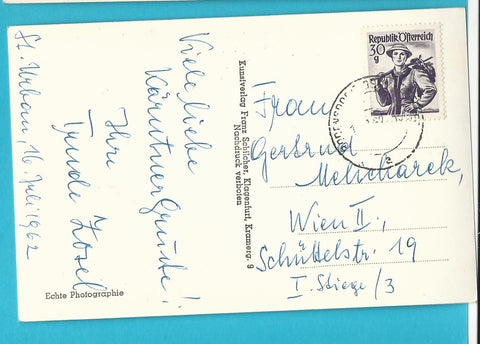 St. Urban, 16. Juli 1962
Viele liebe
Kärntner Grüße!
Ihre
Trude
Echte Photographie
Kunstverlag Franz Schilcher, Klagenfurt, Kramerg. 9
Nachdruck verboten
Republik Österreich
30
g
Frau
Gertrud
Melicharek,
Wien II.,
Schüttelstr. 19
I. Stiege/3